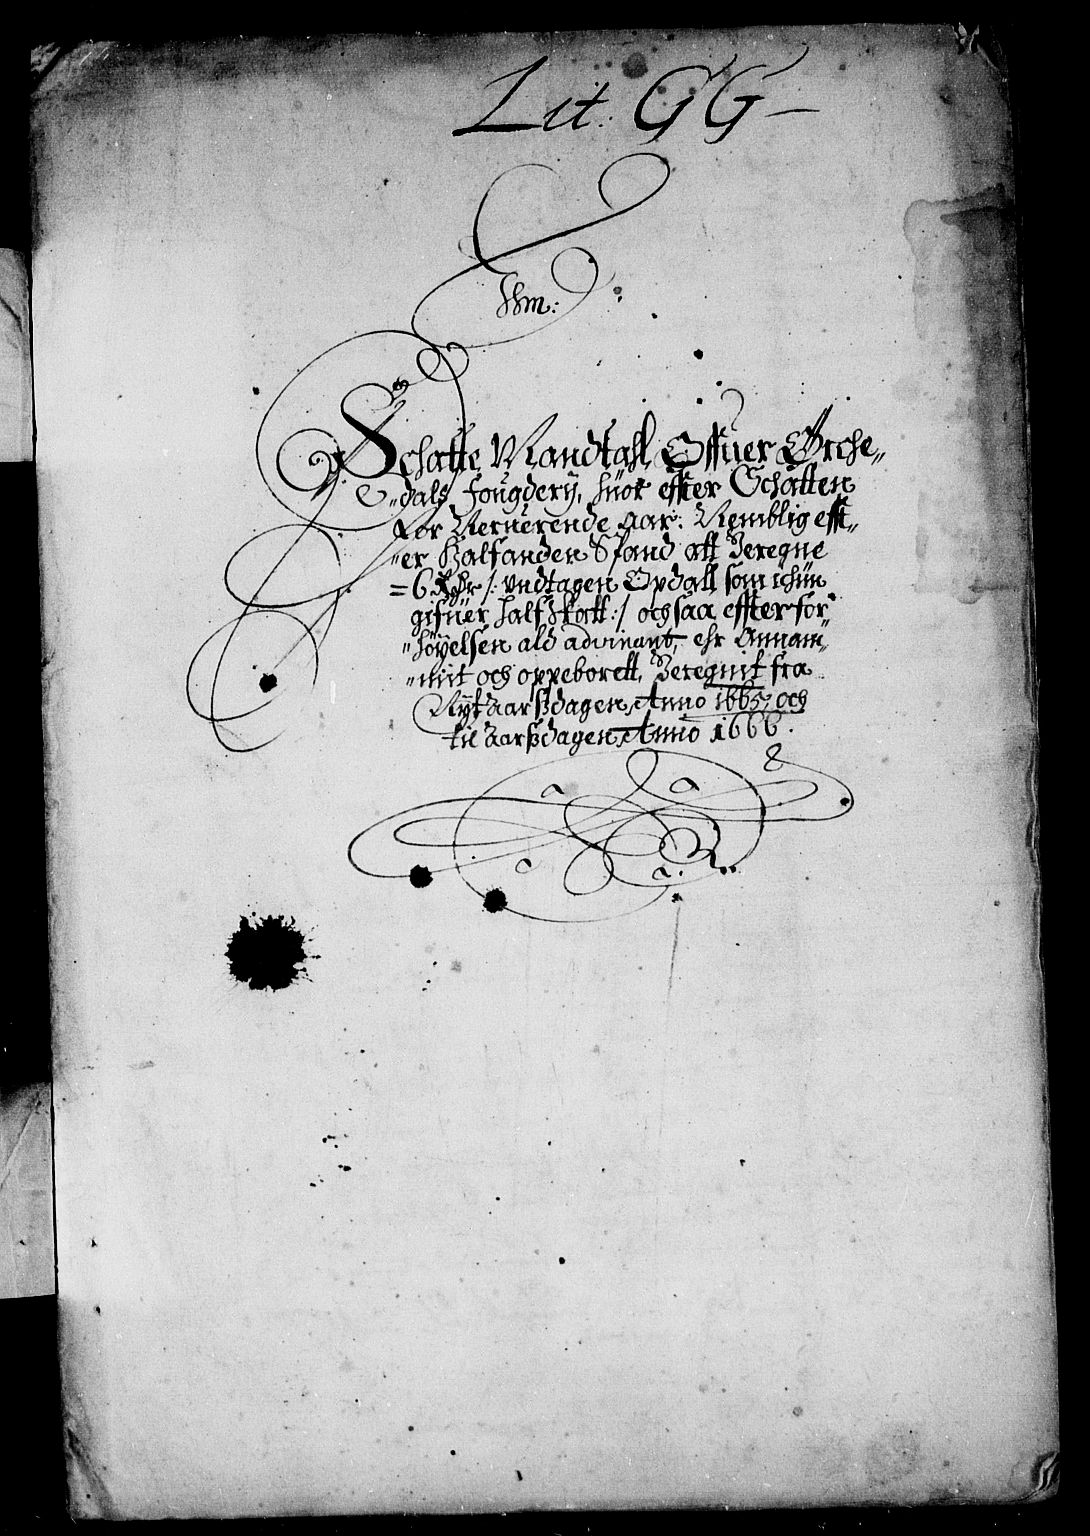 Lit. GG
Schatte Mandtall Offuer Orche„
„dals fougderÿ, huor effter Schatten
for Neruerende aar: Nemblig efft„
„er Halfanden Spand att Beregne
=6 Rdr /: vndtagen Opdall som ichun
gifuer half skatt :/ och saa effter for„
„höyelsen ald advinant, ehr Annam„
„mit och oppeborett, Beregnit fra
Nytaarsdagen Anno 1665, och
til aarsdagen Anno 1666.